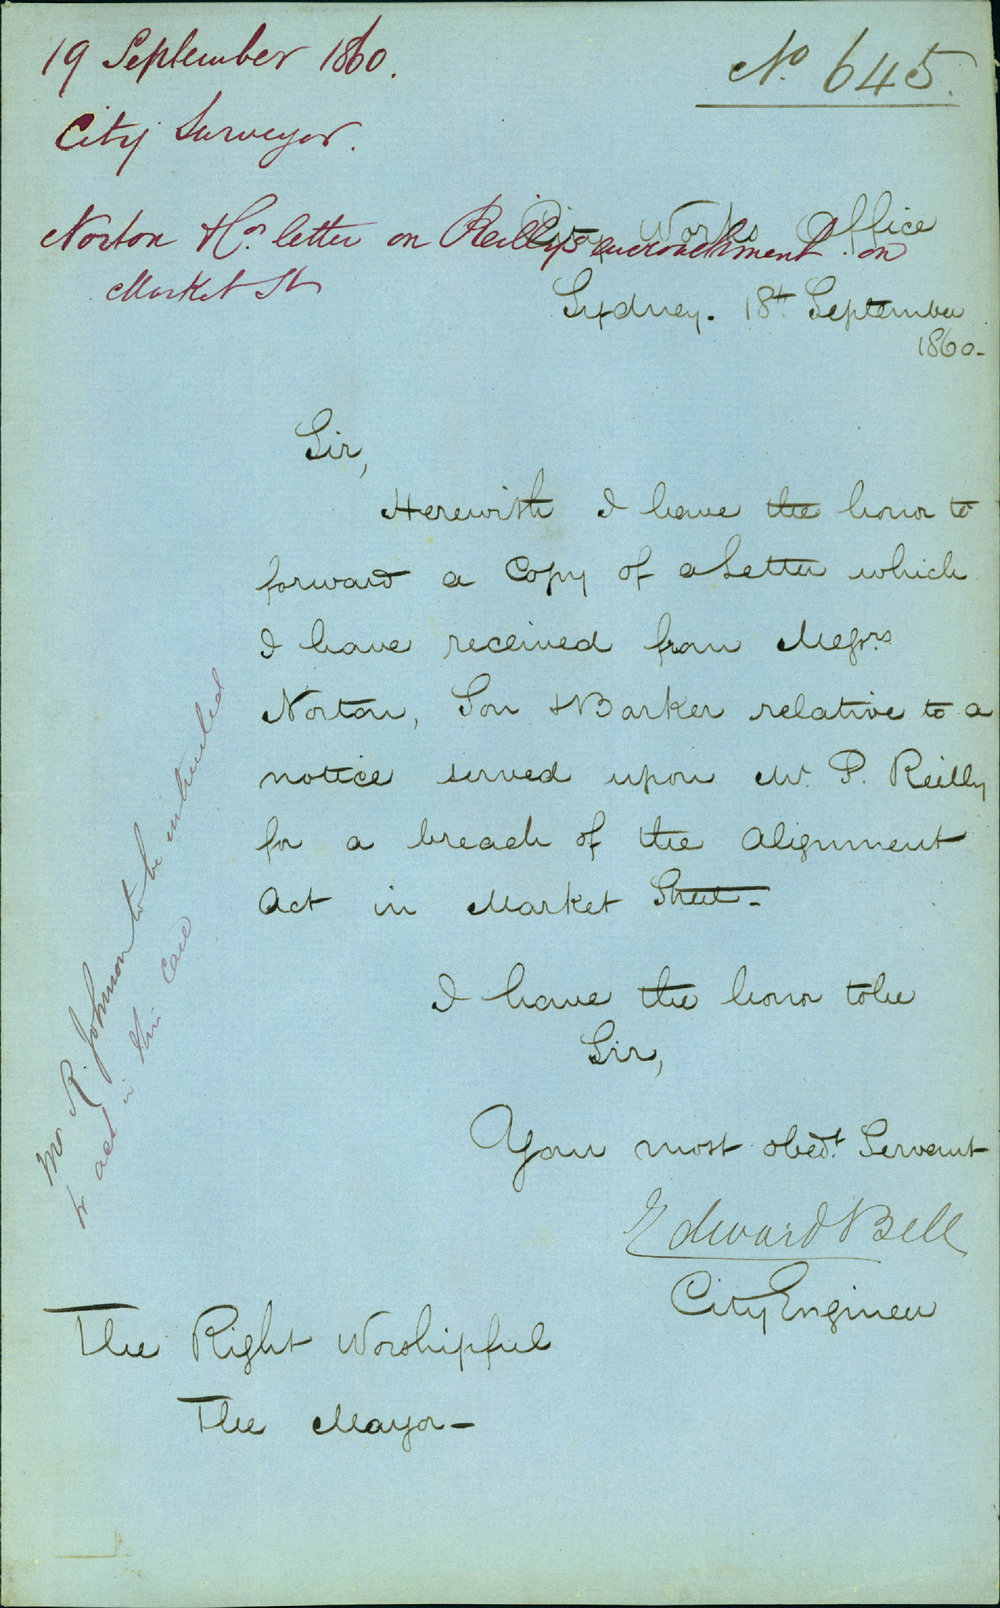 19 September 1860.
No. 645.
City Surveyor.
Norton & Co.s letter on Reilly's encroachment on
Market St
City Works Office
Sydney. 18th September
1860-
Sir,
Herewith I have the honor to
forward a Copy of a Letter which
I have received from Messrs
Norton, Son & Barker relative to a
notice served upon Mr. P. Reilly
for a breach of the Alignment
Act in Market Street-
I have the honor to be
Sir,
Your most obedt. Servant
Edward Bell
City Engineer
The Right Worshipful
The Mayor-
Mr R. Johnson to be intrusted
to act in this case